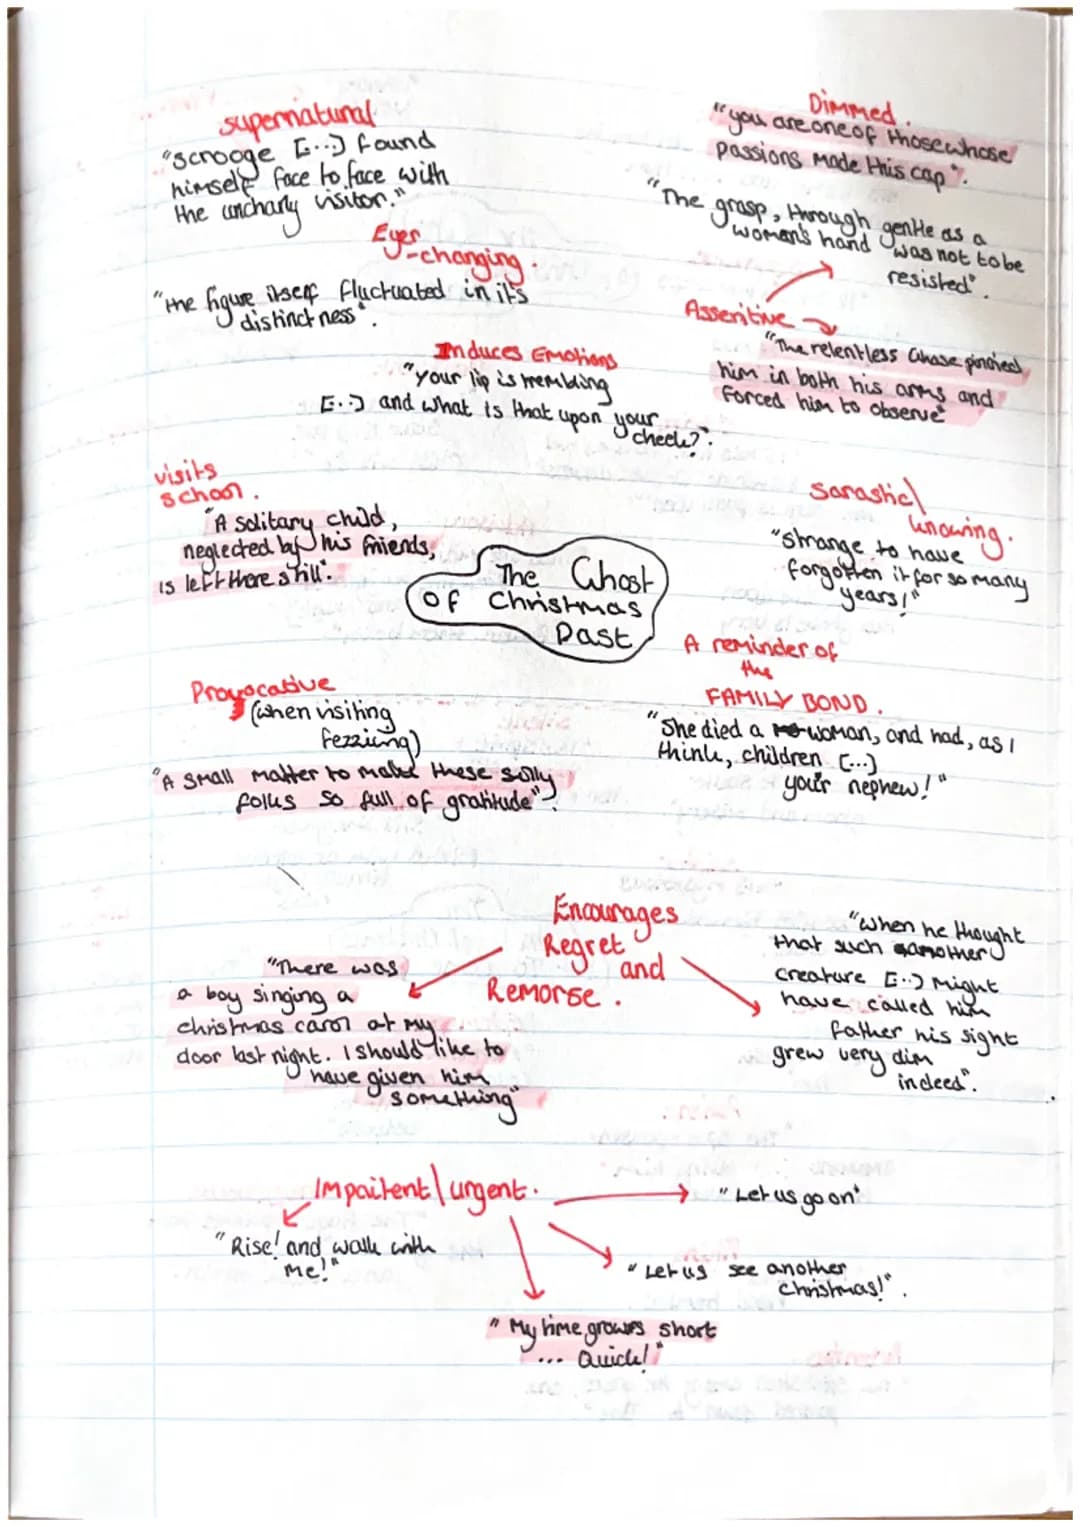 supernatural
"scrooge [...] found
himself face to face with
the uncharly visitor."
Dimmed.
"you are one of those whose
passions made this cap".
"The grasp, through gentle as a
women's hand was not to be
resisted".
Ever
-changing.
"the figure itself fluctuated in it's
distinctness".
Asseritive
"The relentless Ghase pinched
him in both his arms and
forced him to observe"
Induces Emotions
"your lip is trembling
[...] and what is that upon your
cheek?".
visits
school.
"A solitary child,
neglected by his friends,
is left there still".
The Ghost
Of Christmas
Past
Sarastic\
knowing.
"strange to have
forgotten it for so many
years!"
A reminder of
the
FAMILY BOND.
"She died a woman, and had, as I
think, children [...]
your nephew!"
Provocative
(when visiting
fezziwg)
"A small matter to make these silly
folks so full of gratitude".
Encourages
Regret
and
Remorse.
"There was
a boy singing a
christmas carol at my
door last night. I should like to
have given him
something"
"when he thought
that such another
creature [...] might
have called him
father his sight
grew very dim
indeed".
Impaitent\urgent.
"Rise! and walk with
me!"
"Let us go on"
"Let us see another
Christmas!".
"My time grows short
... Quick!"